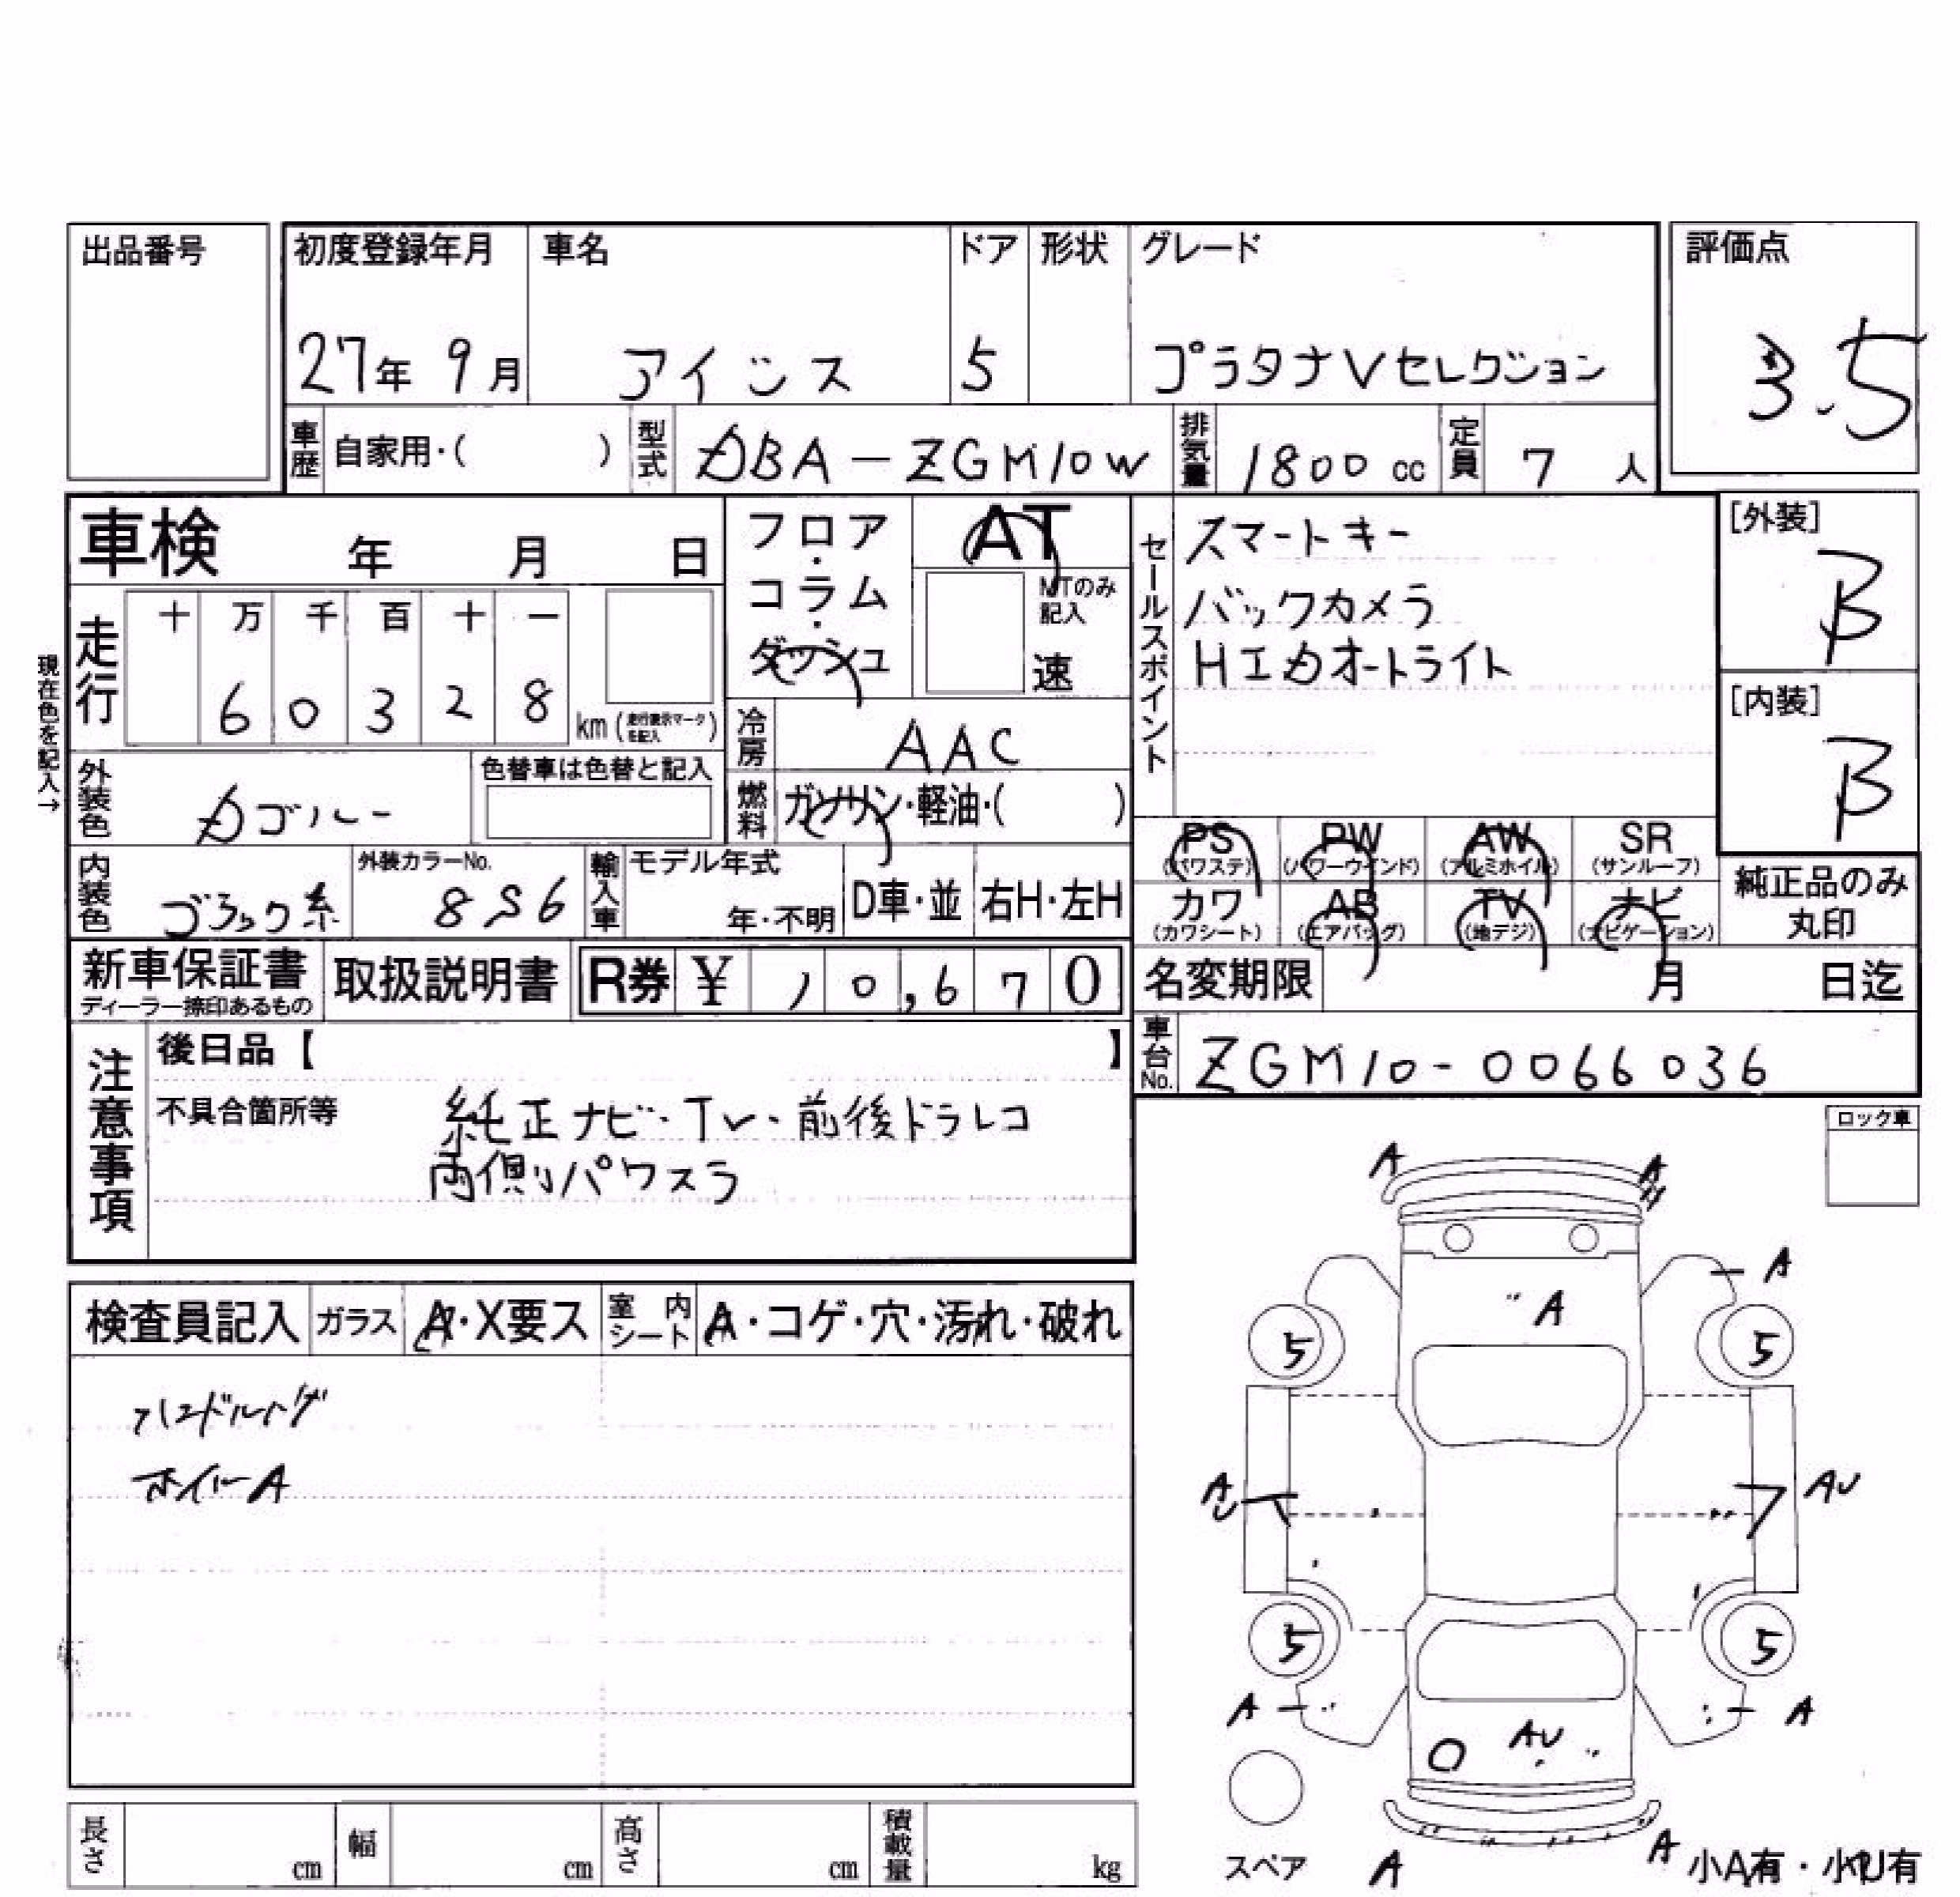 出品番号
初度登録年月 車名 ドア 形状 グレード 評価点
27年 9月 アイシス 5 プラタナVセレクション 3.5
車歴 自家用・( ) 型式 DBA-ZGM10W 排気量 1800 cc 定員 7 人
車検 年 月 日
フロア・コラム・ダッシュ
AT
MTのみ記入
速
セールスポイント
スマートキー
バックカメラ
HIDオートライト
[外装]
B
[内装]
B
現在色を記入→
走行 十 万 千 百 十 一
6 0 3 2 8 km (走行表示マークを記入)
冷房 AAC
燃料 ガソリン・軽油・( )
外装色 Dブルー 色替車は色替と記入
内装色 ブラック系 外装カラーNo. 8S6 輸入車 モデル年式 年・不明 D車・並 右H・左H
PS (パワステ) PW (パワーウインド) AW (アルミホイル) SR (サンルーフ)
カワ (カワシート) AB (エアバッグ) TV (地デジ) ナビ (ナビゲーション)
純正品のみ
丸印
新車保証書 ディーラー捺印あるもの 取扱説明書 R券 ¥ 10,670
名変期限 月 日迄
車台No. ZGM10-0066036
注意事項
後日品【 】
不具合箇所等 純正ナビ・TV・前後ドラレコ
両側パワスラ
ロック車
検査員記入 ガラス A・X要ス 室内シート A・コゲ・穴・汚れ・破れ
ハンドルハゲ
ホイルA
A A
A
A
5 5
AU AU
5 5
A A
AU
スペア A A 小A有・小U有
長さ cm 幅 cm 高さ cm 積載量 kg